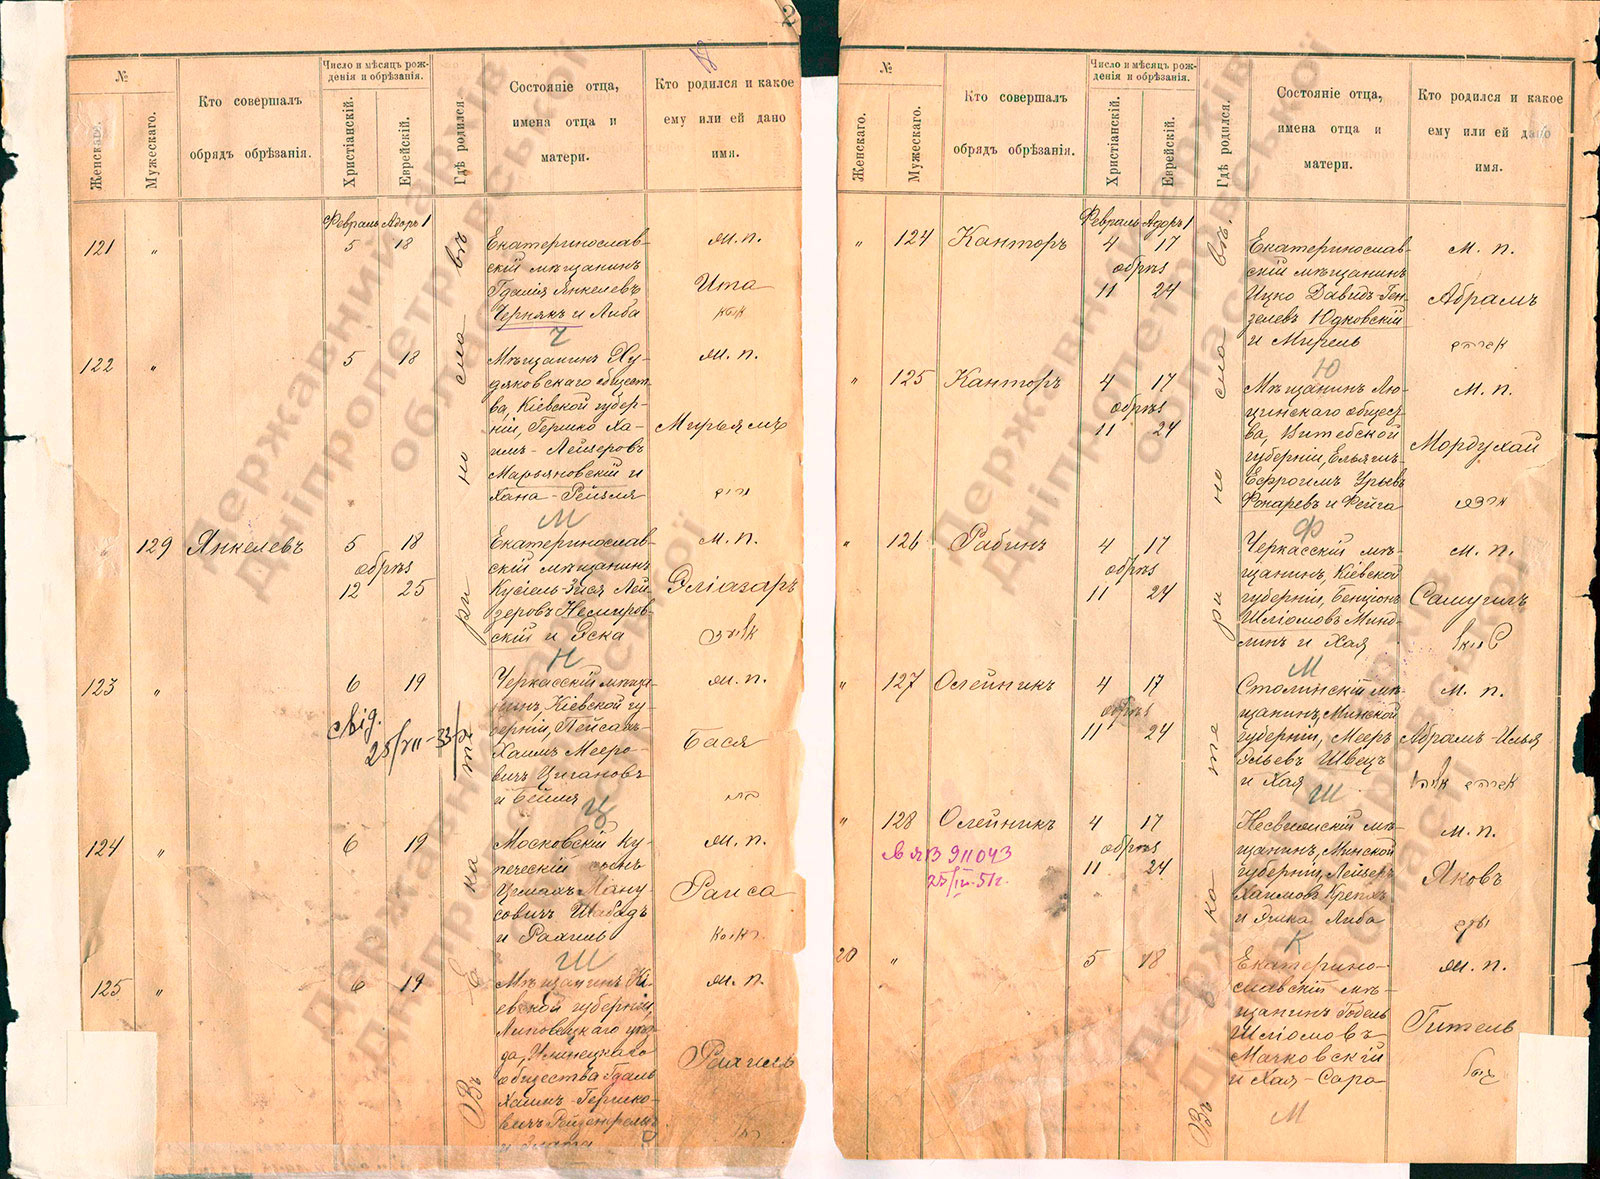 2
№
Женскаго.
Мужескаго.
Кто совершалъ
обрядъ обрѣзанія.
Число и мѣсяцъ рож-
денія и обрѣзанія.
Христіанскій.
Еврейскій.
Гдѣ родился.
Состояніе отца,
имена отца и
матери.
Кто родился и какое
ему или ей дано
имя.
Февраль Адоръ 1
121 " 5 18
Екатеринослав-
скій мѣщанинъ
Гдалія Янкелевъ
Чернякъ и Либа
Ч
м. п.
Ита
122 " 5 18
Мѣщанинъ Ху-
дяковскаго общест-
ва, Кіевской губер-
ніи, Гершко Ха-
имъ-Лейзеровъ
Марьяновскій и
Хана-Рейзля
М
м. п.
Мирьямъ
" 129 Янкелевъ 5 18
обрѣз
12 25
Екатеринослав-
скій мѣщанинъ
Кусіель-Зися Лей-
зеровъ Немиров-
скій и Эска
Н
м. п.
Эліазаръ
123 " 6 19
свід.
25/VII-33/2
Черкасскій мѣща-
нинъ, Кіевской гу-
берніи, Пейсах-
Хаимъ Мееро-
вичъ Цигановъ
и Бейля
Ц
м. п.
Бася
124 " 6 19
Московскій ку-
печескій сынъ
Шабадъ
и Рахиль
Ш
м. п.
Раиса
125 " 6 19
Мѣщанинъ Кі-
евской губерніи,
Липовецкаго уѣз-
да, Илинецкаго
общества Гдаль
Хаимъ-Гершко-
вичъ
м. п.
Рахиль
Въ Екатеринославѣ
№
Женскаго.
Мужескаго.
Кто совершалъ
обрядъ обрѣзанія.
Число и мѣсяцъ рож-
денія и обрѣзанія.
Христіанскій.
Еврейскій.
Гдѣ родился.
Состояніе отца,
имена отца и
матери.
Кто родился и какое
ему или ей дано
имя.
Февраль Адоръ 1
" 124 Канторъ 4 17
обрѣз
11 24
Екатеринослав-
скій мѣщанинъ
Ицко Давидъ Ген-
зелевъ Юдковскій
и Мирель
Ю
м. п.
Абрамъ
" 125 Канторъ 4 17
обрѣз
11 24
Мѣщанинъ Лю-
цинскаго общест-
ва, Витебской
губерніи, Ельяшъ-
Ефроимъ Урьевъ
Фонаревъ и Фейга
Ф
м. п.
Мордухай
" 126 Рабинъ 4 17
обрѣз
11 24
Черкасскій мѣ-
щанинъ, Кіевской
губерніи, Бенціонъ
Шліомовъ Минд-
линъ и Хая
М
м. п.
Самуилъ
" 127 Олейникъ 4 17
обрѣз
11 24
Столинскій мѣ-
щанинъ, Минской
губерніи, Мееръ
Эльевъ Швецъ
и Хая
Ш
м. п.
Абрамъ-Илья
" 128 Олейникъ 4 17
обрѣз
11 24
ЯВ 911043
25/IV-51г.
Несвижскій мѣ-
щанинъ, Минской
губерніи, Лейзеръ
Хаимовъ Крепхъ
и Эшка Либа
К
м. п.
Яковъ
" 5 18
Екатерино-
славскій мѣ-
щанинъ Годель
Шліомовъ
Мачковскій
и Хая-Сара
М
м. п.
Гитель
Въ Екатеринославѣ.
Державний архів
Дніпропетровської
області